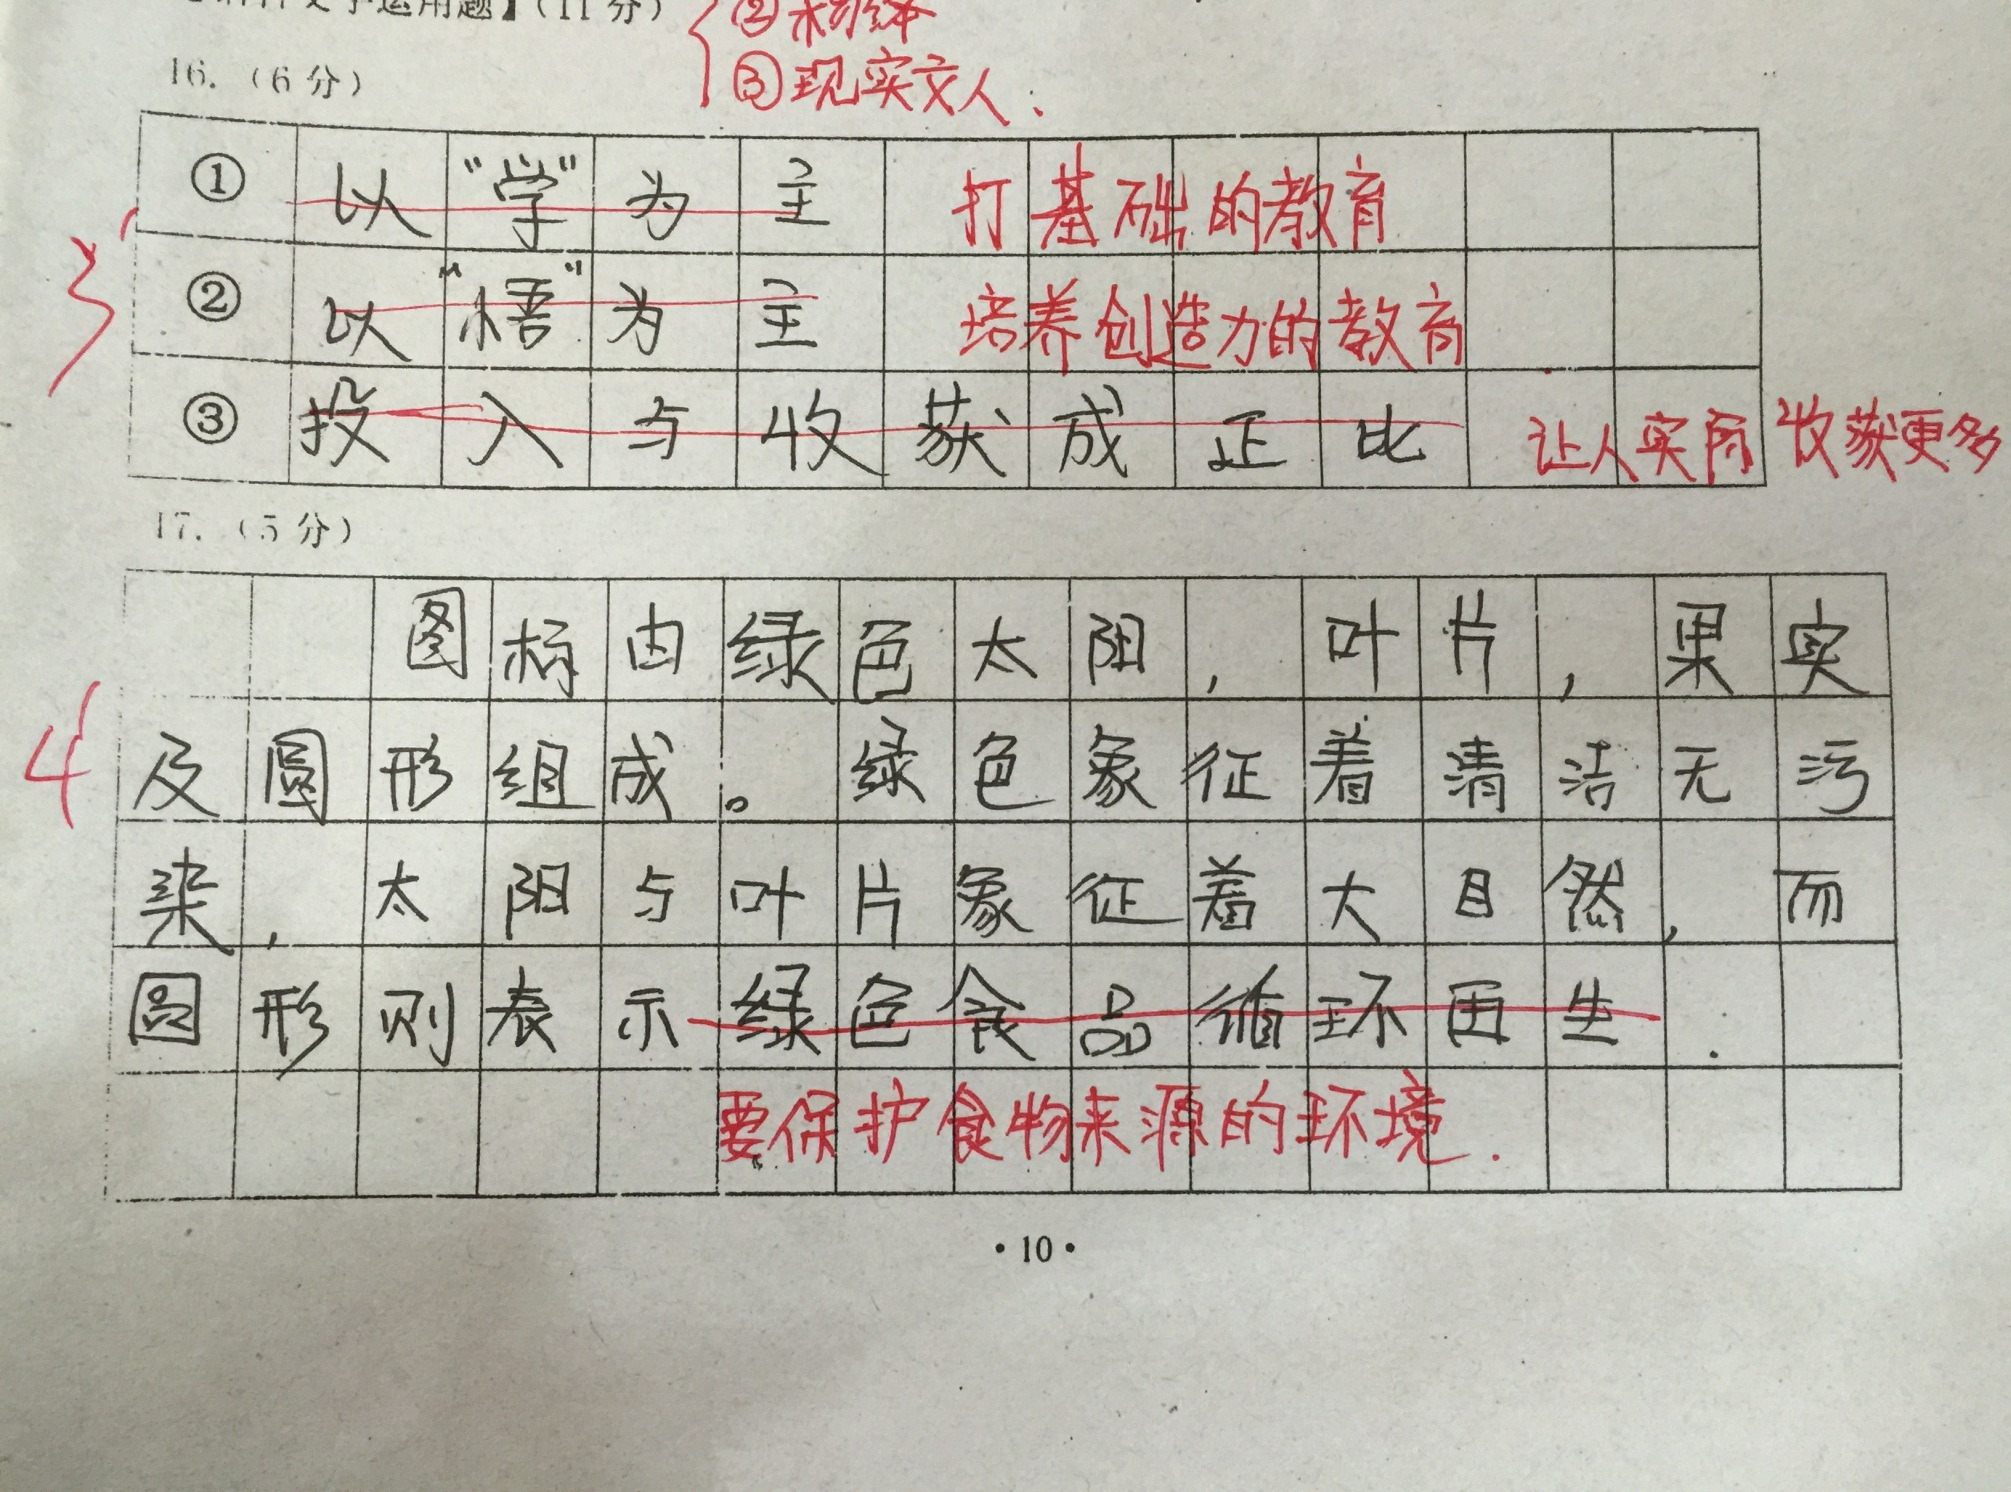 运用题】(11分)
②
③现实文人.
16.(6分)
① 以“学”为主 打基础的教育
② 以“悟”为主 培养创造力的教育
3
③ 投入与收获成正比 让人实际收获更多
17.(5分)
图标由绿色太阳,叶片,果实
4
及圆形组成。绿色象征着清洁无污
染,太阳与叶片象征着大自然,而
圆形则表示绿色食品循环再生.
要保护食物来源的环境.
·10·